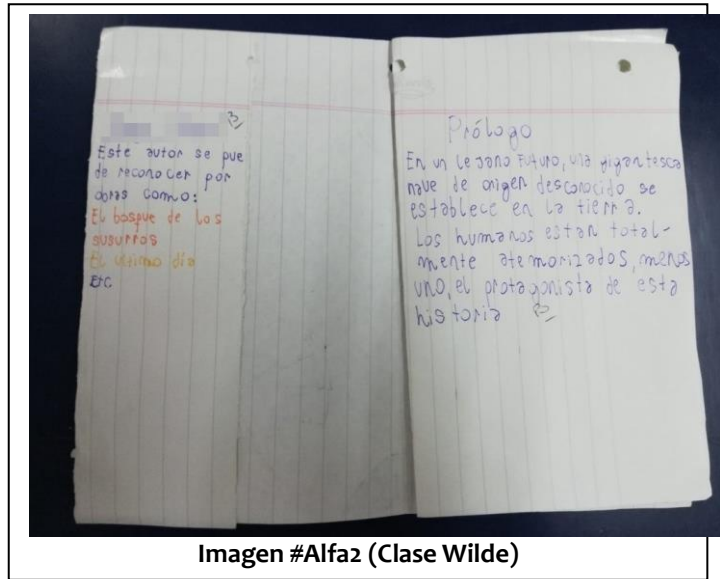 Este autor se pue
de reconocer por
obras como:
El bosque de los
susurros
El ultimo día
Etc
Prólogo
En un lejano Futuro, una gigantesca
nave de origen desconocido se
establece en la tierra.
Los humanos están total-
mente atemorizados, menos
uno, el protagonista de esta
historia
Imagen #Alfa2 (Clase Wilde)